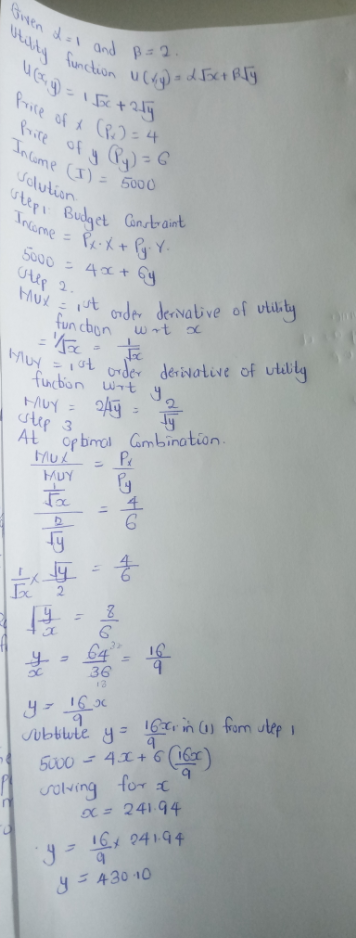 Given α=1 and β=2.
Utility function U(x,y)=α√x+β√y
U(x,y)=1√x+2√y
Price of x (Px)=4
Price of y (Py)=6
Income (I)=5000
Solution
Step 1 Budget Constraint
Income = Px.X + Py.Y.
5000 = 4x + 6y
Step 2.
MUX = 1st order derivative of utility
function wrt x
= 1/√x = 1/√x
MUY = 1st order derivative of utility
function wrt y
MUY = 2/√y = 2/√y
Step 3
At optimal Combination.
MUX/MUY = Px/Py
(1/√x)/(2/√y) = 4/6
1/√x × √y/2 = 4/6
√(y/x) = 8/6
y/x = 64/36 = 16/9
y = 16/9 x
Substitute y = 16x/9 in (1) from step 1
5000 = 4x + 6(16x/9)
solving for x
x = 241.94
y = 16/9 × 241.94
y = 430.10